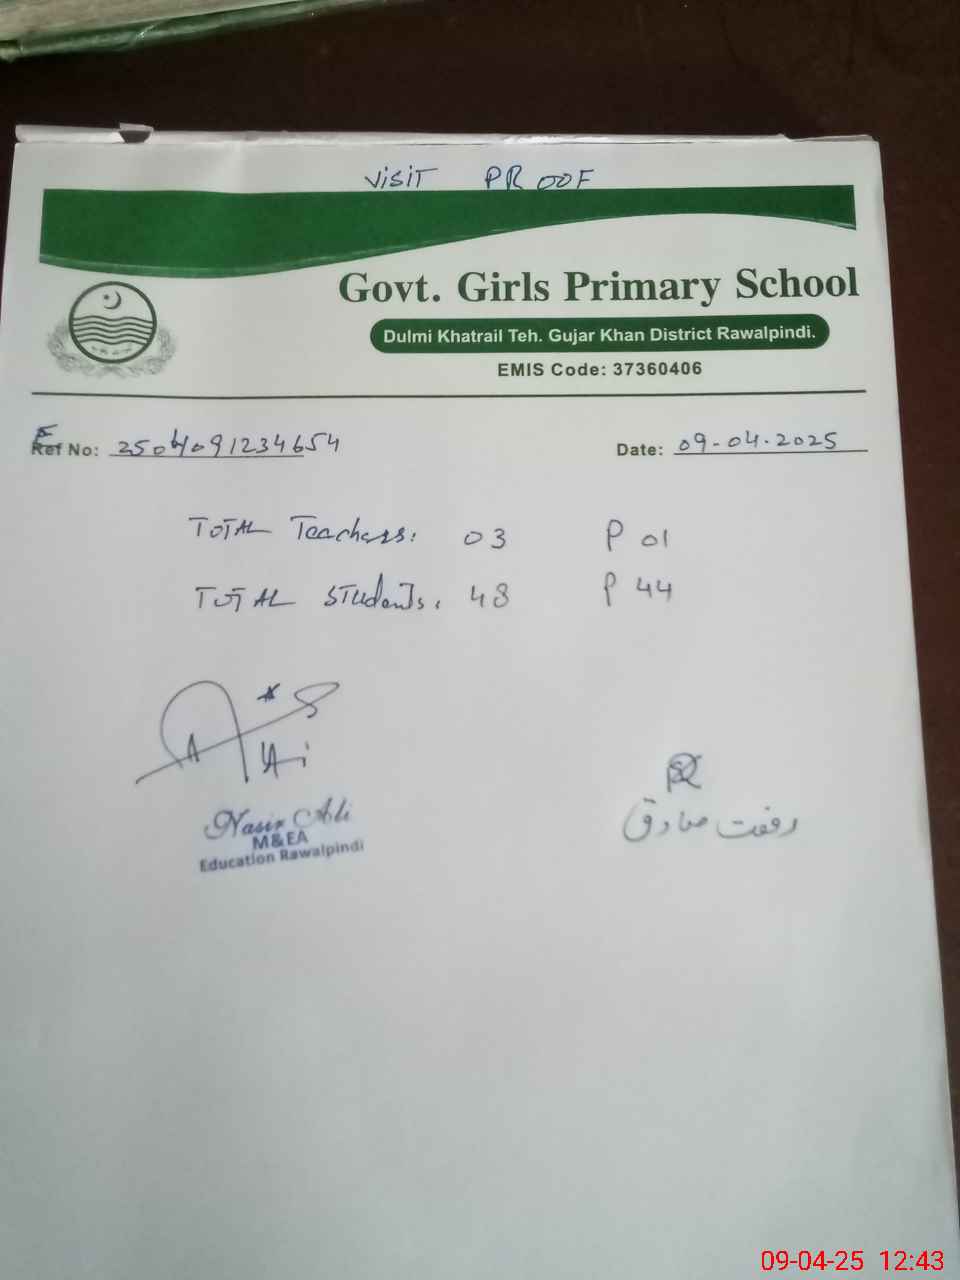 VISIT PROOF
Govt. Girls Primary School
Dulmi Khatrail Teh. Gujar Khan District Rawalpindi.
EMIS Code: 37360406
Ref No: 2504091234654
Date: 09-04-2025
TOTAL Teachers: 03 P 01
TOTAL Students: 48 P 44
Nasir Ali
M&EA
Education Rawalpindi
رفعت صادق
09-04-25 12:43